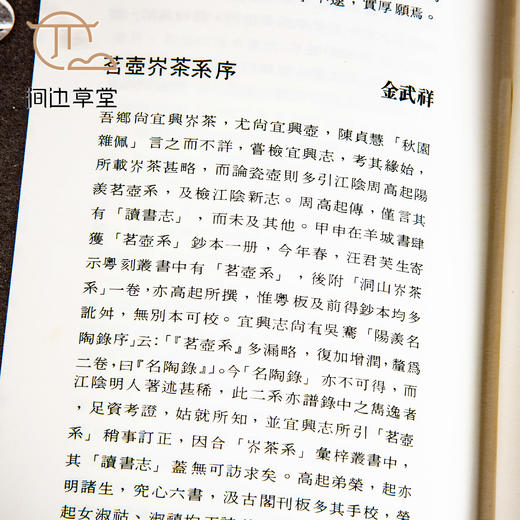 不逮，實厚願焉。
茗壺岕茶系序
金武祥
澗边草堂
吾鄉尙宜興岕茶，尤尙宜興壺，陳貞慧「秋園
雜佩」言之而不詳，嘗檢宜興志，考其緣始，
所載岕茶甚略，而論瓷壺則多引江陰周高起陽
羨茗壺系，及檢江陰新志。周高起傳，僅言其
有「讀書志」，而未及其他。甲申在羊城書肆
獲「茗壺系」鈔本一册，今年春，汪君芙生寄
示粵刻叢書中有「茗壺系」，後附「洞山岕茶
系」一卷，亦高起所撰，惟粵板及前得鈔本均多
訛舛，無別本可校。宜興志尙有吳騫「陽羨名
陶錄序」云：「『茗壺系』多漏略，復加增潤，釐爲
二卷，曰『名陶錄』」。今「名陶錄」亦不可得，而
江陰明人著述甚稀，此二系亦譜錄中之雋逸者
，足資考證，姑就所知，並宜興志所引「茗壺
系」稍事訂正，因合「岕茶系」彙梓叢書中，
其「讀書志」蓋無可訪求矣。高起弟榮，起亦
明諸生，究心六書，汲古閣刊板多其手校，榮
起女淑祜、淑禧均工詩